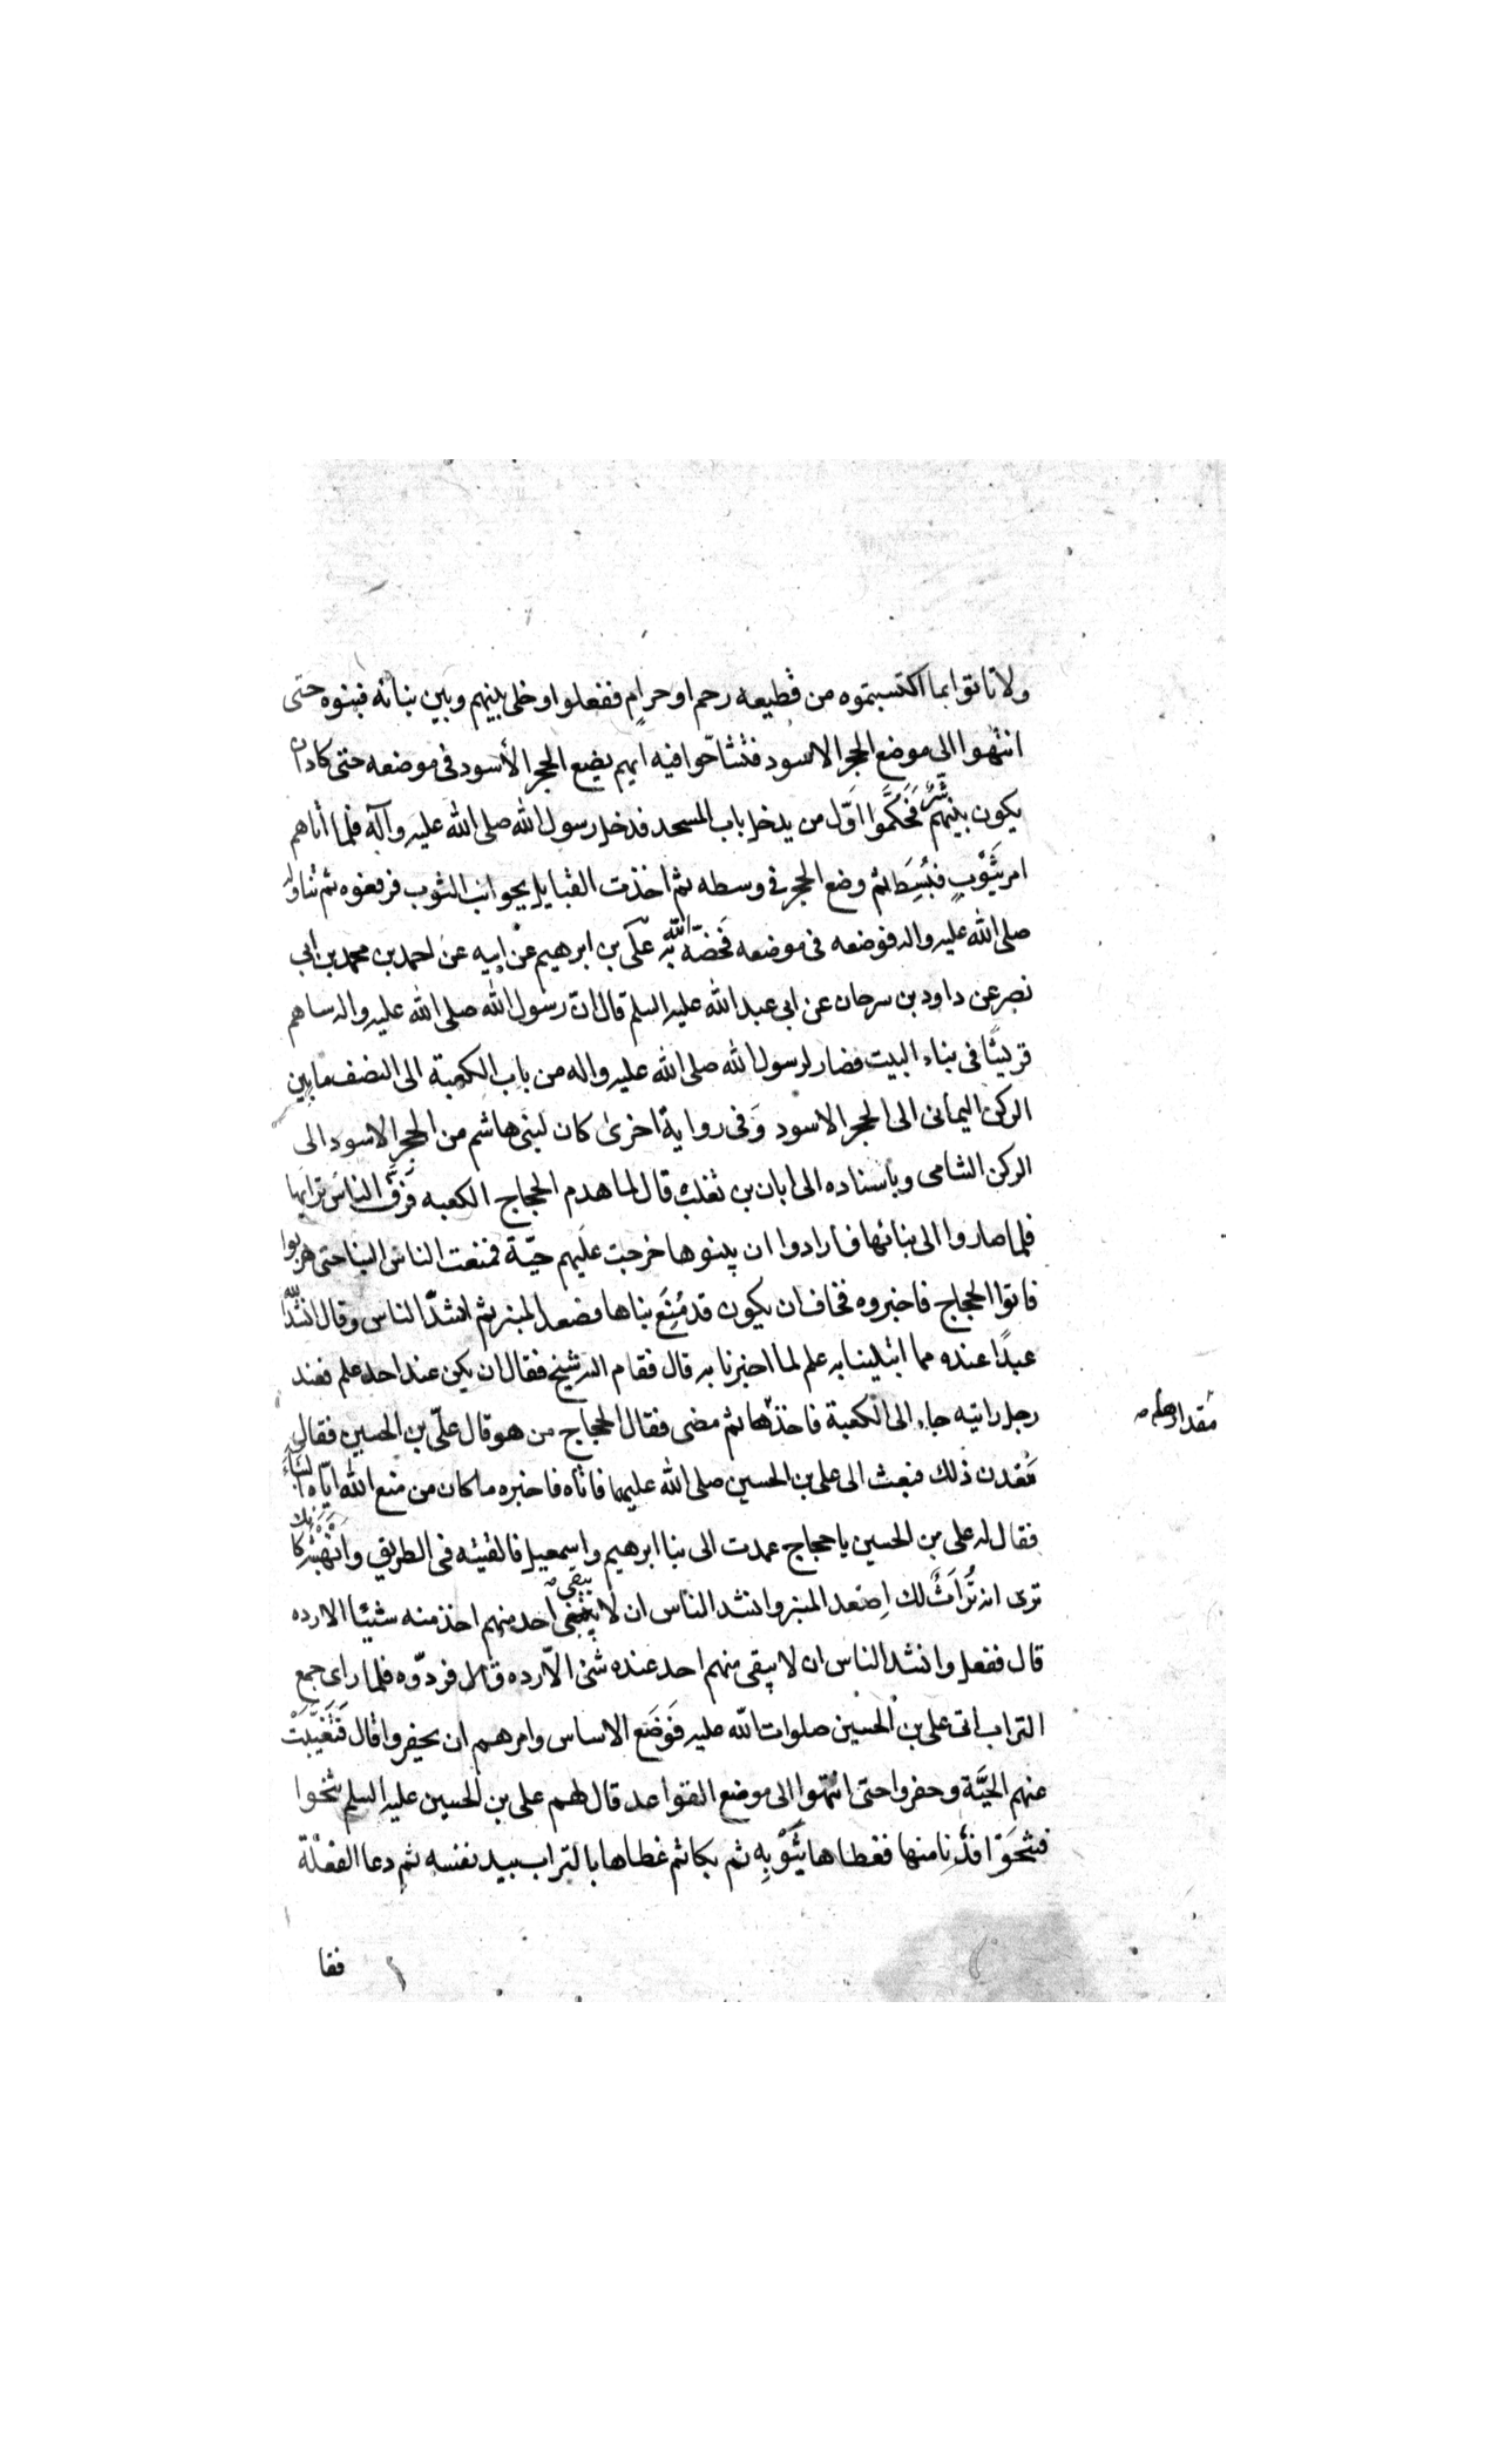 ولا تاتوا بما اكتسبتموه من قطيعه رحم او حرام ففعلوا وخلى بينهم وبين بنائه فبنوه حتى
انتهوا الى موضع الحجر الاسود فتشاحوا فيه ايهم يضع الحجر الأسود في موضعه حتى كاد ان
يكون بينهم شرٌ فَحَكَّموا اوّل من يدخل باب المسجد فدخل رسول الله صلى الله عليه وآله فلما أتاهم
امر بثَوْبٍ فبُسِطَ ثم وضع الحجر في وسطه ثم اخذت القبايل بجوانب الثوب فرفعوه ثم تناوله
صلى الله عليه واله فوضعه في موضعه فخصّه الله به علي بن ابرهيم عن ابيه عن احمد بن محمد بن أبي
نصر عن داود بن سرحان عن ابي عبد الله عليه السلم قال انّ رسول الله صلى الله عليه واله ساهم
قريشًا في بناء البيت فصار لرسول الله صلى الله عليه واله من باب الكعبة الى النصف ما بين
الركن اليماني الى الحجر الاسود وَفي رواية اخرىٰ كان لبني هاشم من الحجر الاسود الى
الركن الشامى وباسناده الى ابان بن تغلب قال لما هدم الحجاج الكعبه فَرَّقَ الناسُ ترابها
فلما صاروا الى بنائها فارادوا ان يبنوها خرجت عليهم حيّة فمنعت الناس البنا حتى هربوا
فاتوا الحجاج فاخبروه فخاف ان يكون قد مُنِعَ بناها فصعد المنبر ثم انشدّ الناس وقال انشد الله
عبدًا عنده مما ابتلينا به علم لما اخبرنا به قال فقام اليه شيخ فقال ان يكن عند احد علم فعند
رجل رايته جاء الى الكعبة فاخذ ها ثم مضى فقال الحجاج من هو قال علىّ بن الحسين فقال
مَعْدن ذلك فبعث الى على بن الحسين صلى الله عليهما فاتاه فاخبره ما كان من منع الله ايّاه البناءَ
فقال له على بن الحسين يا حجاج عمدت الى بنا ابرهيم واسمعيل فالقيته في الطريق وانْتَهَبْتَه كانك
ترى انه تُرَاثٌ لك اِصْعد المنبر وانشد الناس ان لا يبقى احد منهم اخذ منه شيئا الا رده
قال ففعل وانشد الناس ان لا يبقى منهم احد عنده شئ الّا رده قال فردّوه فلما راى جمع
التراب اتى على بن الحسين صلوات الله عليه فَوَضَع الاساس وامرهم ان يحفروا قال فَتَغَيَّبَتْ
عنهم الحَيَّة وحفروا حتى انتهوا الى موضع القواعد قال لهم على بن الحسين عليه السلم تنحوا
فتنحَوْا فدَنا منها فغطاها بثَوْبِهِ ثم بكا ثم غطاها بالتراب بيد نفسه ثم دعا الفعْلَة
فقا